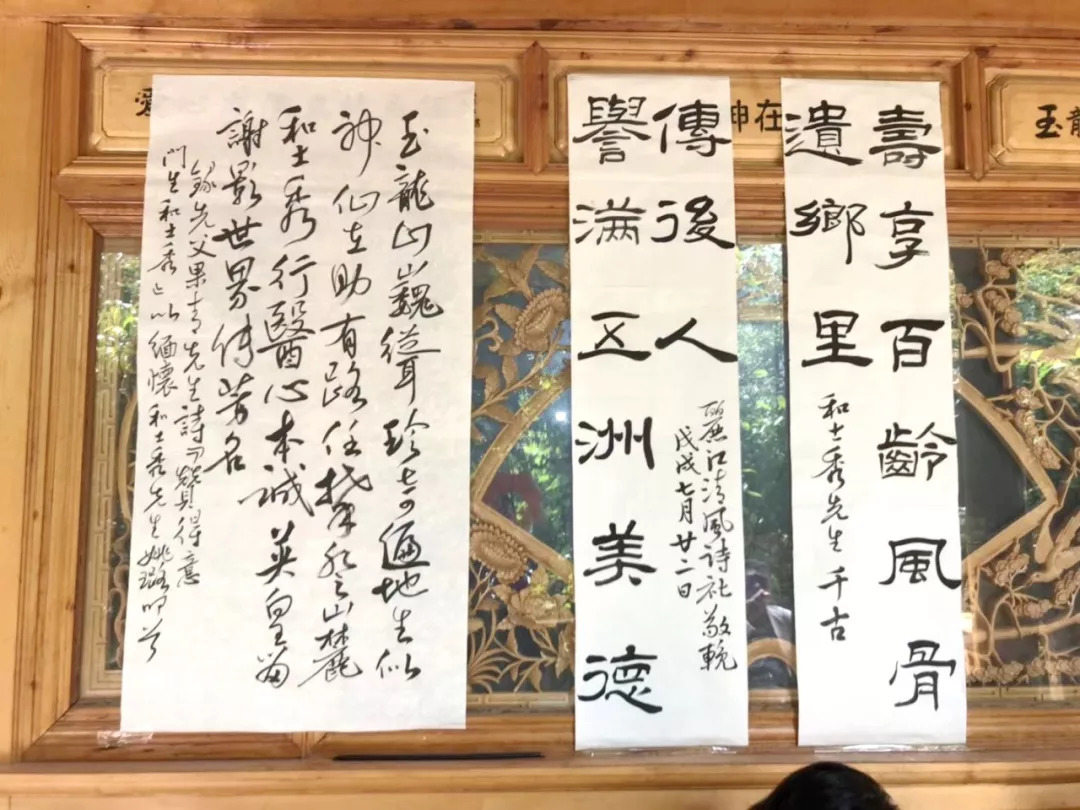 玉龍
壽享百齡風骨
遺鄉里
和士秀先生千古
神在
譽满五洲美德
傳後人
麗江清風詩社敬輓
戊戌七月廿二日
玉龍山巍聳珍奇遍地生似
神仙在助有路任攀山麓
和士秀行醫心本誠英皇留
謝影世界傳芳名
錄先父果青先生詩贊得意
門生和士秀以緬懷和士秀先生姚璐明